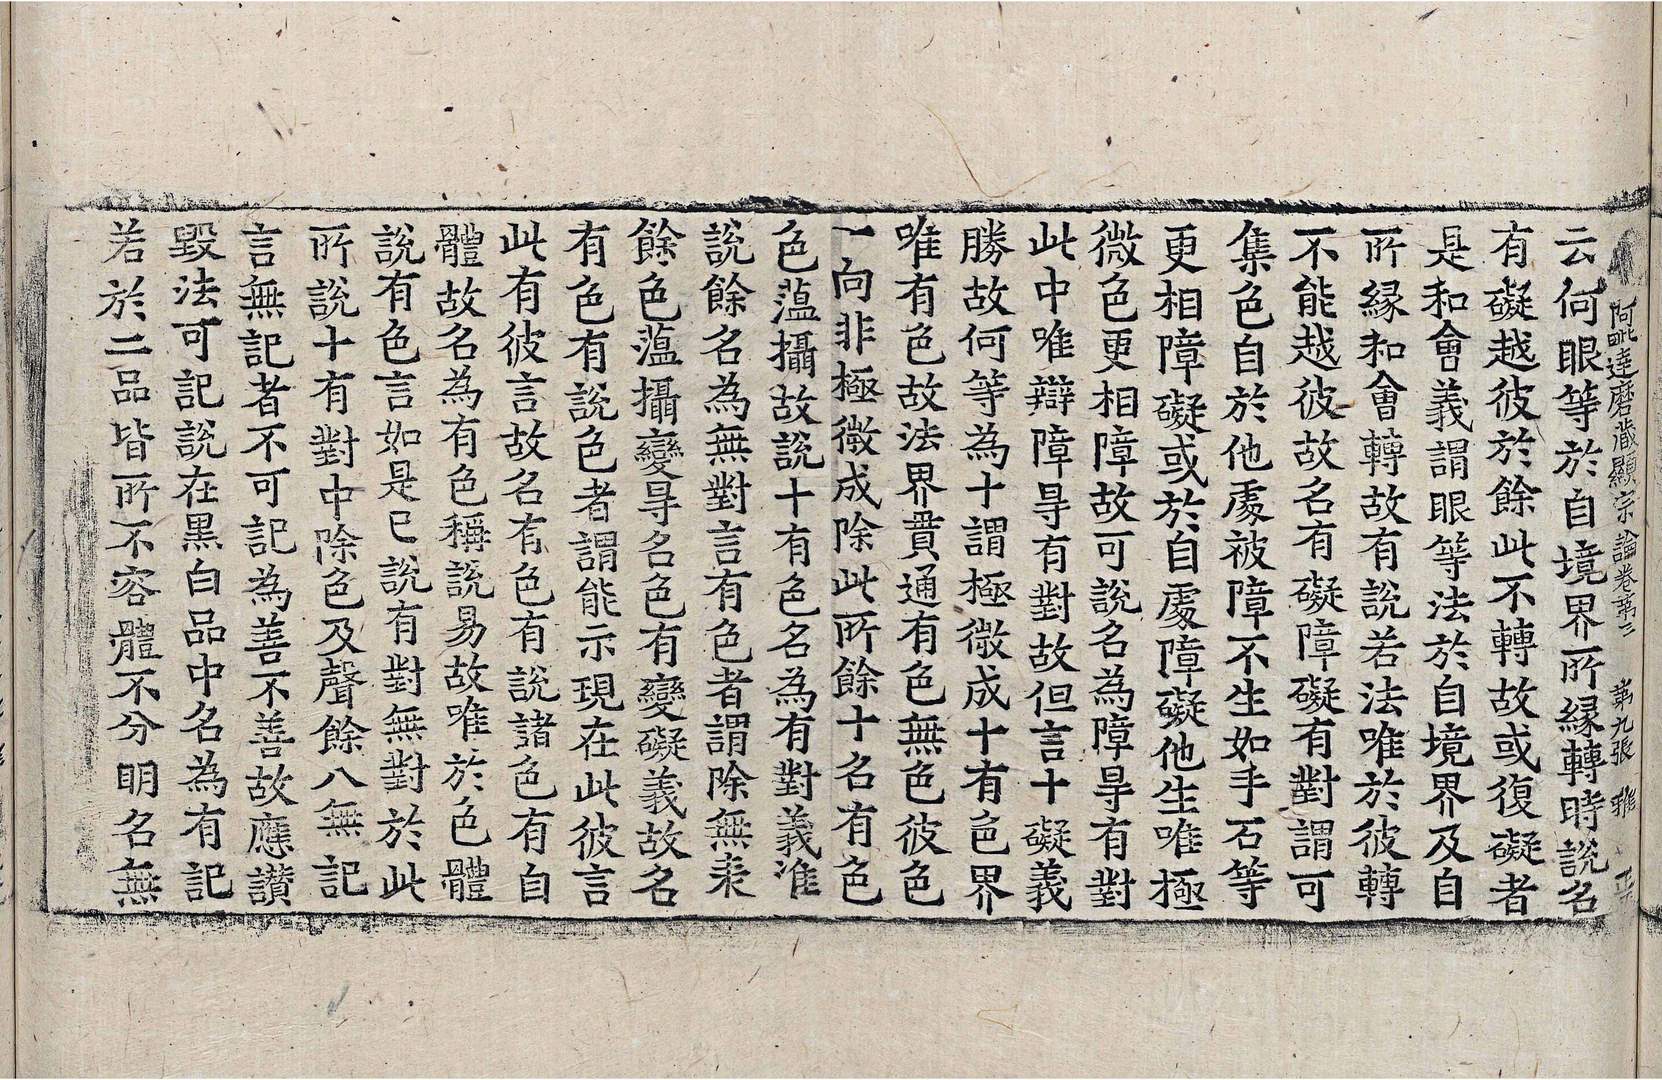 阿毗達磨藏顯宗論卷第三　第九張　雅
云何眼等於自境界所緣轉時說名
有礙越彼於餘此不轉故或復礙者
是和會義謂眼等法於自境界及自
所緣和會轉故有說若法唯於彼轉
不能越彼故名有礙障礙有對謂可
集色自於他處被障不生如手石等
更相障礙或於自處障礙他生唯極
微色更相障故可說名為障㝵有對
此中唯辯障㝵有對故但言十礙義
勝故何等為十謂極微成十有色界
唯有色故法界賁通有色無色彼色
一向非極微成除此所餘十名有色
色蘊攝故說十有色名為有對義准
說餘名為無對言有色者謂除無表
餘色蘊攝變㝵名色有變礙義故名
有色有說色者謂能示現在此彼言
此有彼言故名有色有說諸色有自
體故名為有色稱說易故唯於色體
說有色言如是已說有對無對於此
所說十有對中除色及聲餘八無記
言無記者不可記為善不善故應讃
毀法可記說在黑白品中名為有記
若於二品皆所不容體不分明名無